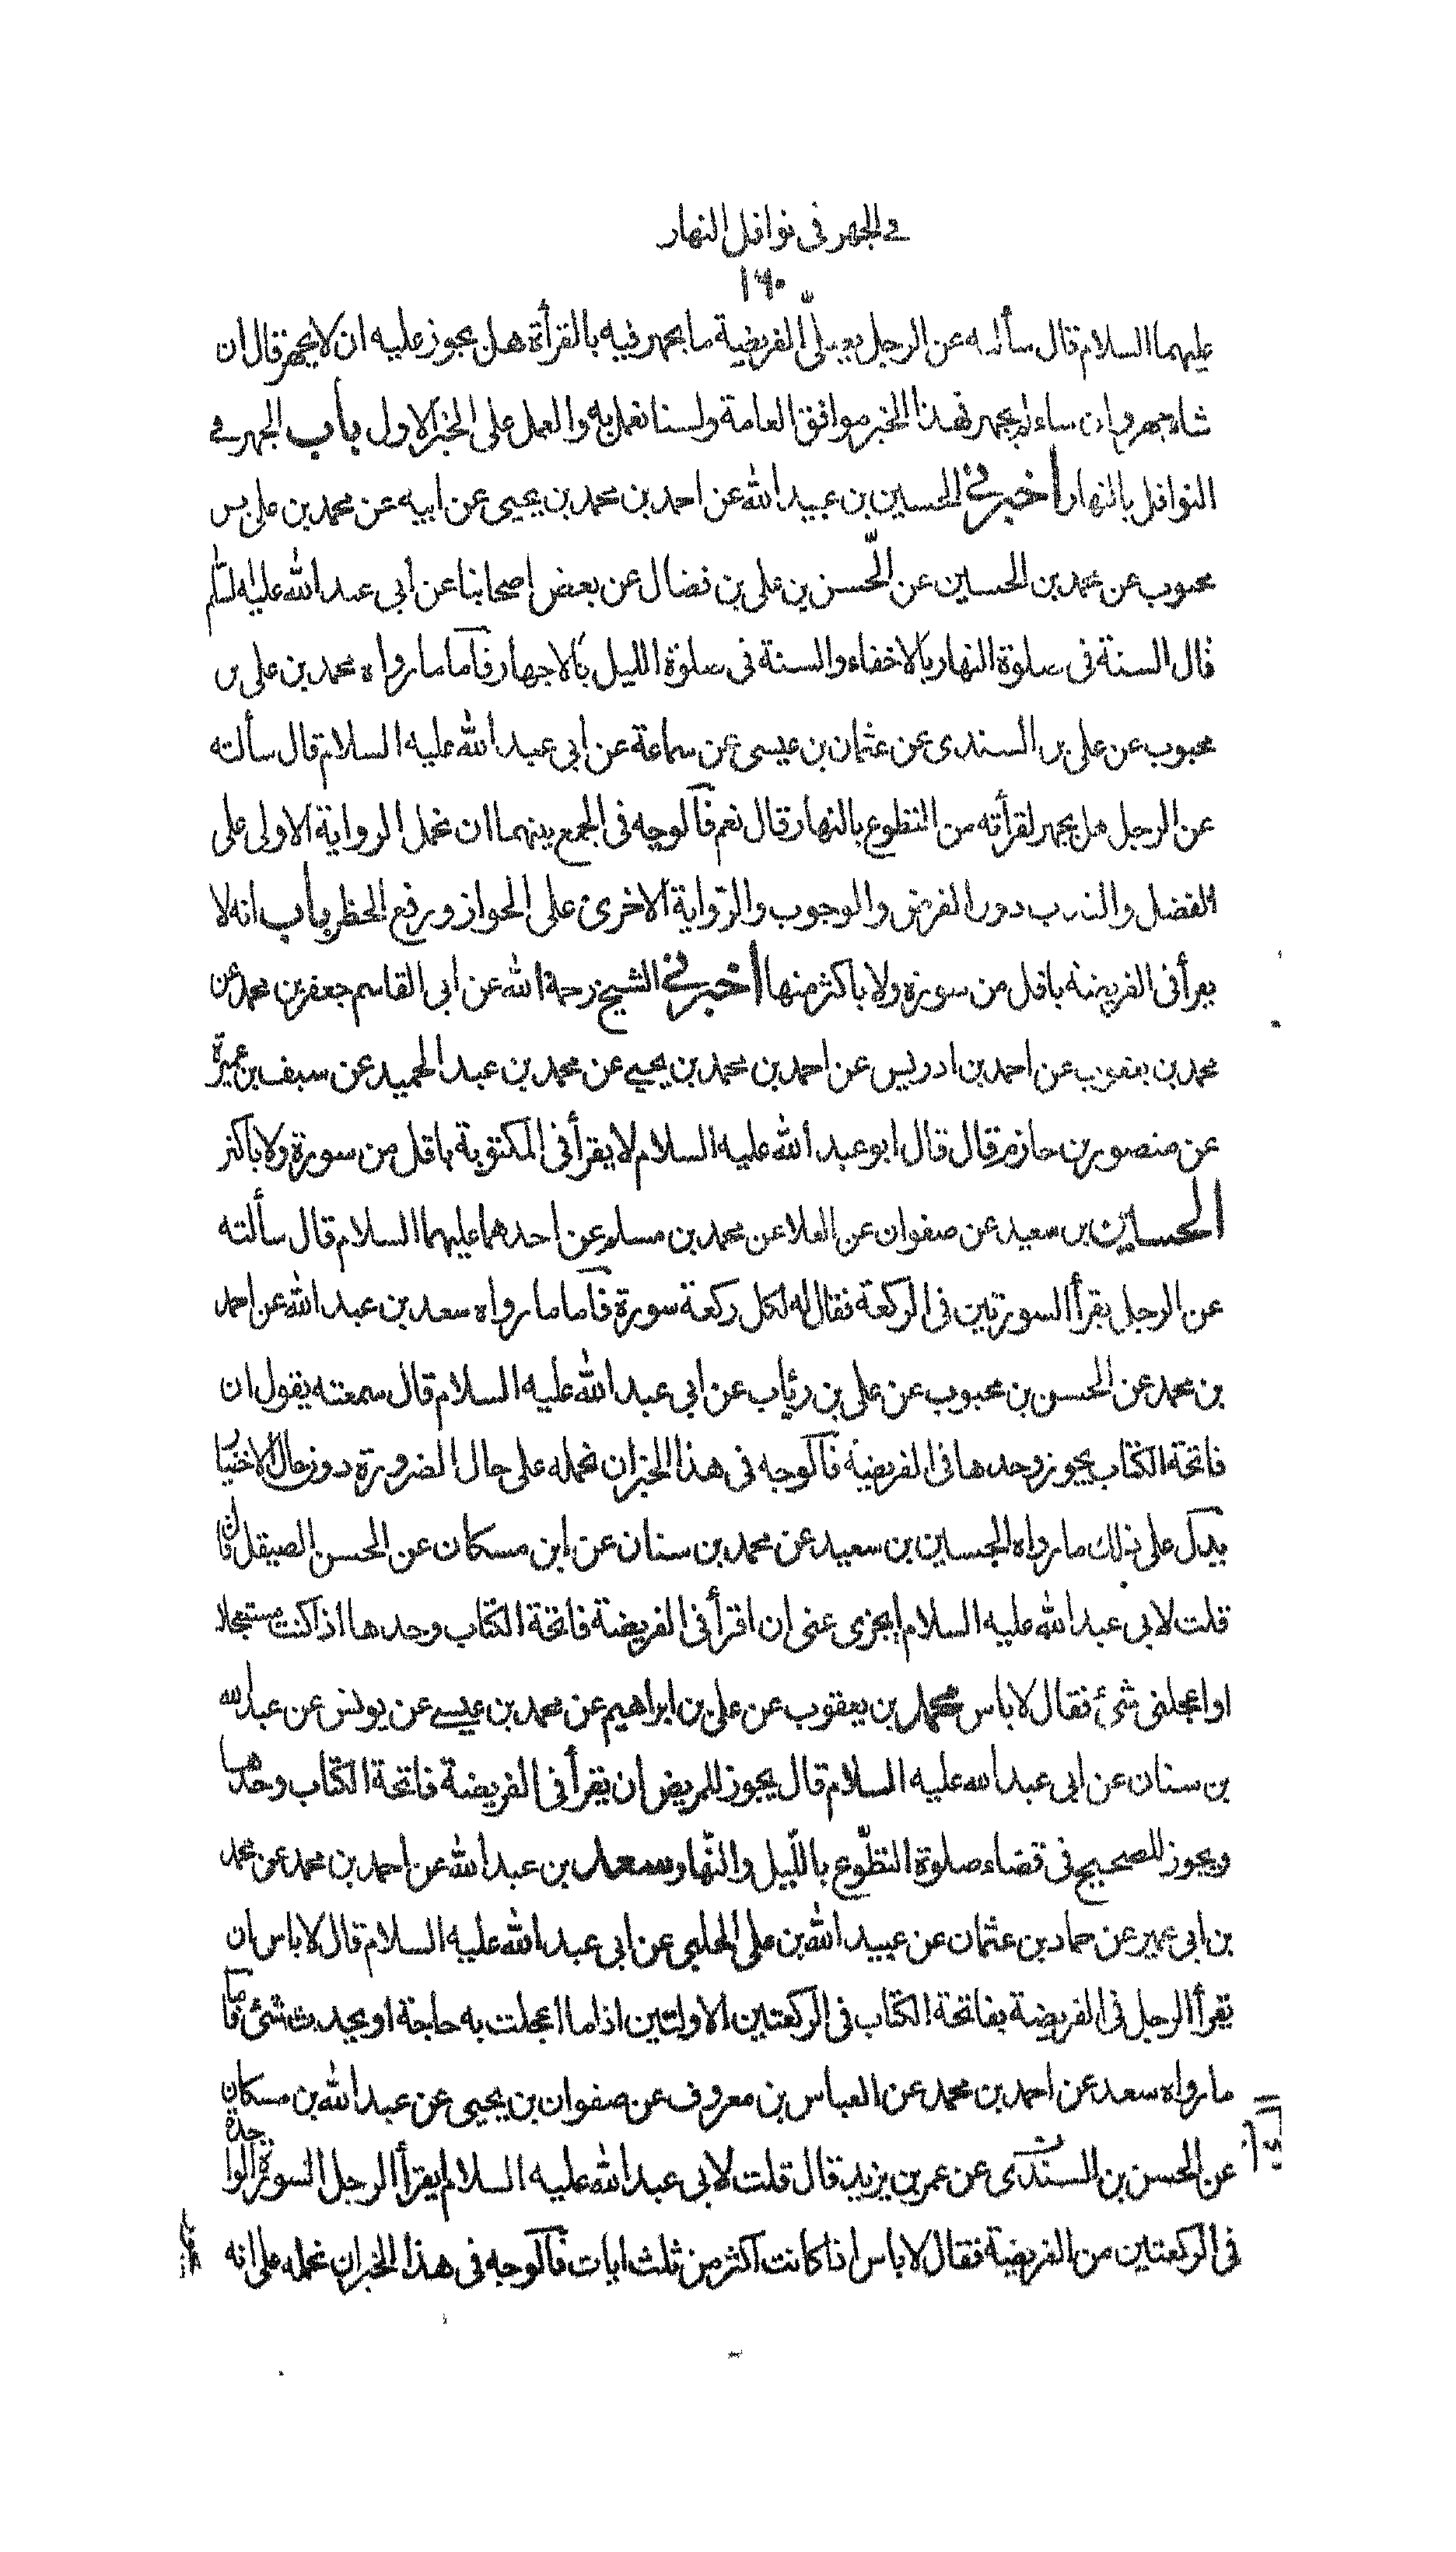 في الجهر فى نوافل النهار
١٦٠
عليهما السلام قال سألته عن الرجل يصلى الفريضة ما يجهر فيه بالقرأة هل يجوز عليه ان لا يجهر قال ان
شاء جهر وان شاء لم يجهر فهذا الخبر موافق العامة ولسنا نعمل به والعمل على الخبر الاول باب الجهر في
النوافل بالنهار أخبرني الحسين بن عبيد الله عن احمد بن محمد بن يحيى عن ابيه عن محمد بن على بن
محبوب عن محمد بن الحسين عن الحسن بن على بن فضال عن بعض اصحابنا عن ابى عبد الله عليه السلم
قال السنة فى صلوة النهار بالاخفاء والسنة فى صلوة الليل بالاجهار فاما ما رواه محمد بن على بن
محبوب عن على بن السندى عن عثمان بن عيسى عن سماعة عن ابى عبد الله عليه السلام قال سألته
عن الرجل هل يجهر لقرأته من التطوع بالنهار قال نعم فالوجه فى الجمع بينهما ان نحمل الرواية الاولى على
الفضل والندب دون الفرض والوجوب والرواية الاخرى على الجواز ورفع الحظر باب انه لا
يقرأ فى الفريضة باقل من سورة ولا باكثر منها أخبرني الشيخ رحمة الله عن ابى القاسم جعفر بن محمد عن
محمد بن يعقوب عن احمد بن ادريس عن احمد بن محمد بن يحيي عن محمد بن عبد الحميد عن سيف بن عميرة
عن منصور بن حازم قال قال ابو عبد الله عليه السلام لا يقرأ فى المكتوبة باقل من سورة ولا باكثر
الحسين بن سعيد عن صفوان عن العلا عن محمد بن مسلم عن احدهما عليهما السلام قال سألته
عن الرجل يقرأ السورتين فى الركعة فقال له لكل ركعة سورة فاما ما رواه سعد بن عبد الله عن احمد
بن محمد عن الحسن بن محبوب عن على بن رئاب عن ابى عبد الله عليه السلام قال سمعته يقول ان
فاتحة الكتاب يجوز وحدها فى الفريضة فالوجه فى هذا الخبر ان نحمله على حال الضرورة دون حال الاختيار
يدل على ذلك ما رواه الحسين بن سعيد عن محمد بن سنان عن ابن مسكان عن الحسن الصيقل قال
قلت لابى عبد الله عليه السلام ايجزى عنى ان اقرأ فى الفريضة فاتحة الكتاب وحدها اذا كنت مستعجلا
او اعجلنى شئ فقال لا باس محمد بن يعقوب عن على بن ابراهيم عن محمد بن عيسى عن يونس عن عبد الله
بن سنان عن ابى عبد الله عليه السلام قال يجوز للمريض ان يقرأ فى الفريضة فاتحة الكتاب وحدها
ويجوز للصحيح فى قضاء صلوة التطوع بالليل والنهار سعد بن عبد الله عن احمد بن محمد عن محمد
بن ابى عمير عن حماد بن عثمان عن عبيد الله بن على الحلبى عن ابى عبد الله عليه السلام قال لا باس ان
يقرأ الرجل فى الفريضة بفاتحة الكتاب فى الركعتين الاولتين اذا ما اعجلت به حاجة او يحدث شئ فاما
ما رواه سعد عن احمد بن محمد عن العباس بن معروف عن صفوان بن يحيى عن عبد الله بن مسكان
عن الحسن بن السندى عن عمر بن يزيد قال قلت لابى عبد الله عليه السلام ايقرأ الرجل السورة الواحدة
فى الركعتين من الفريضة فقال لا باس اذا كانت اكثر من ثلث ايات فالوجه فى هذا الخبر ان نحمله على انه